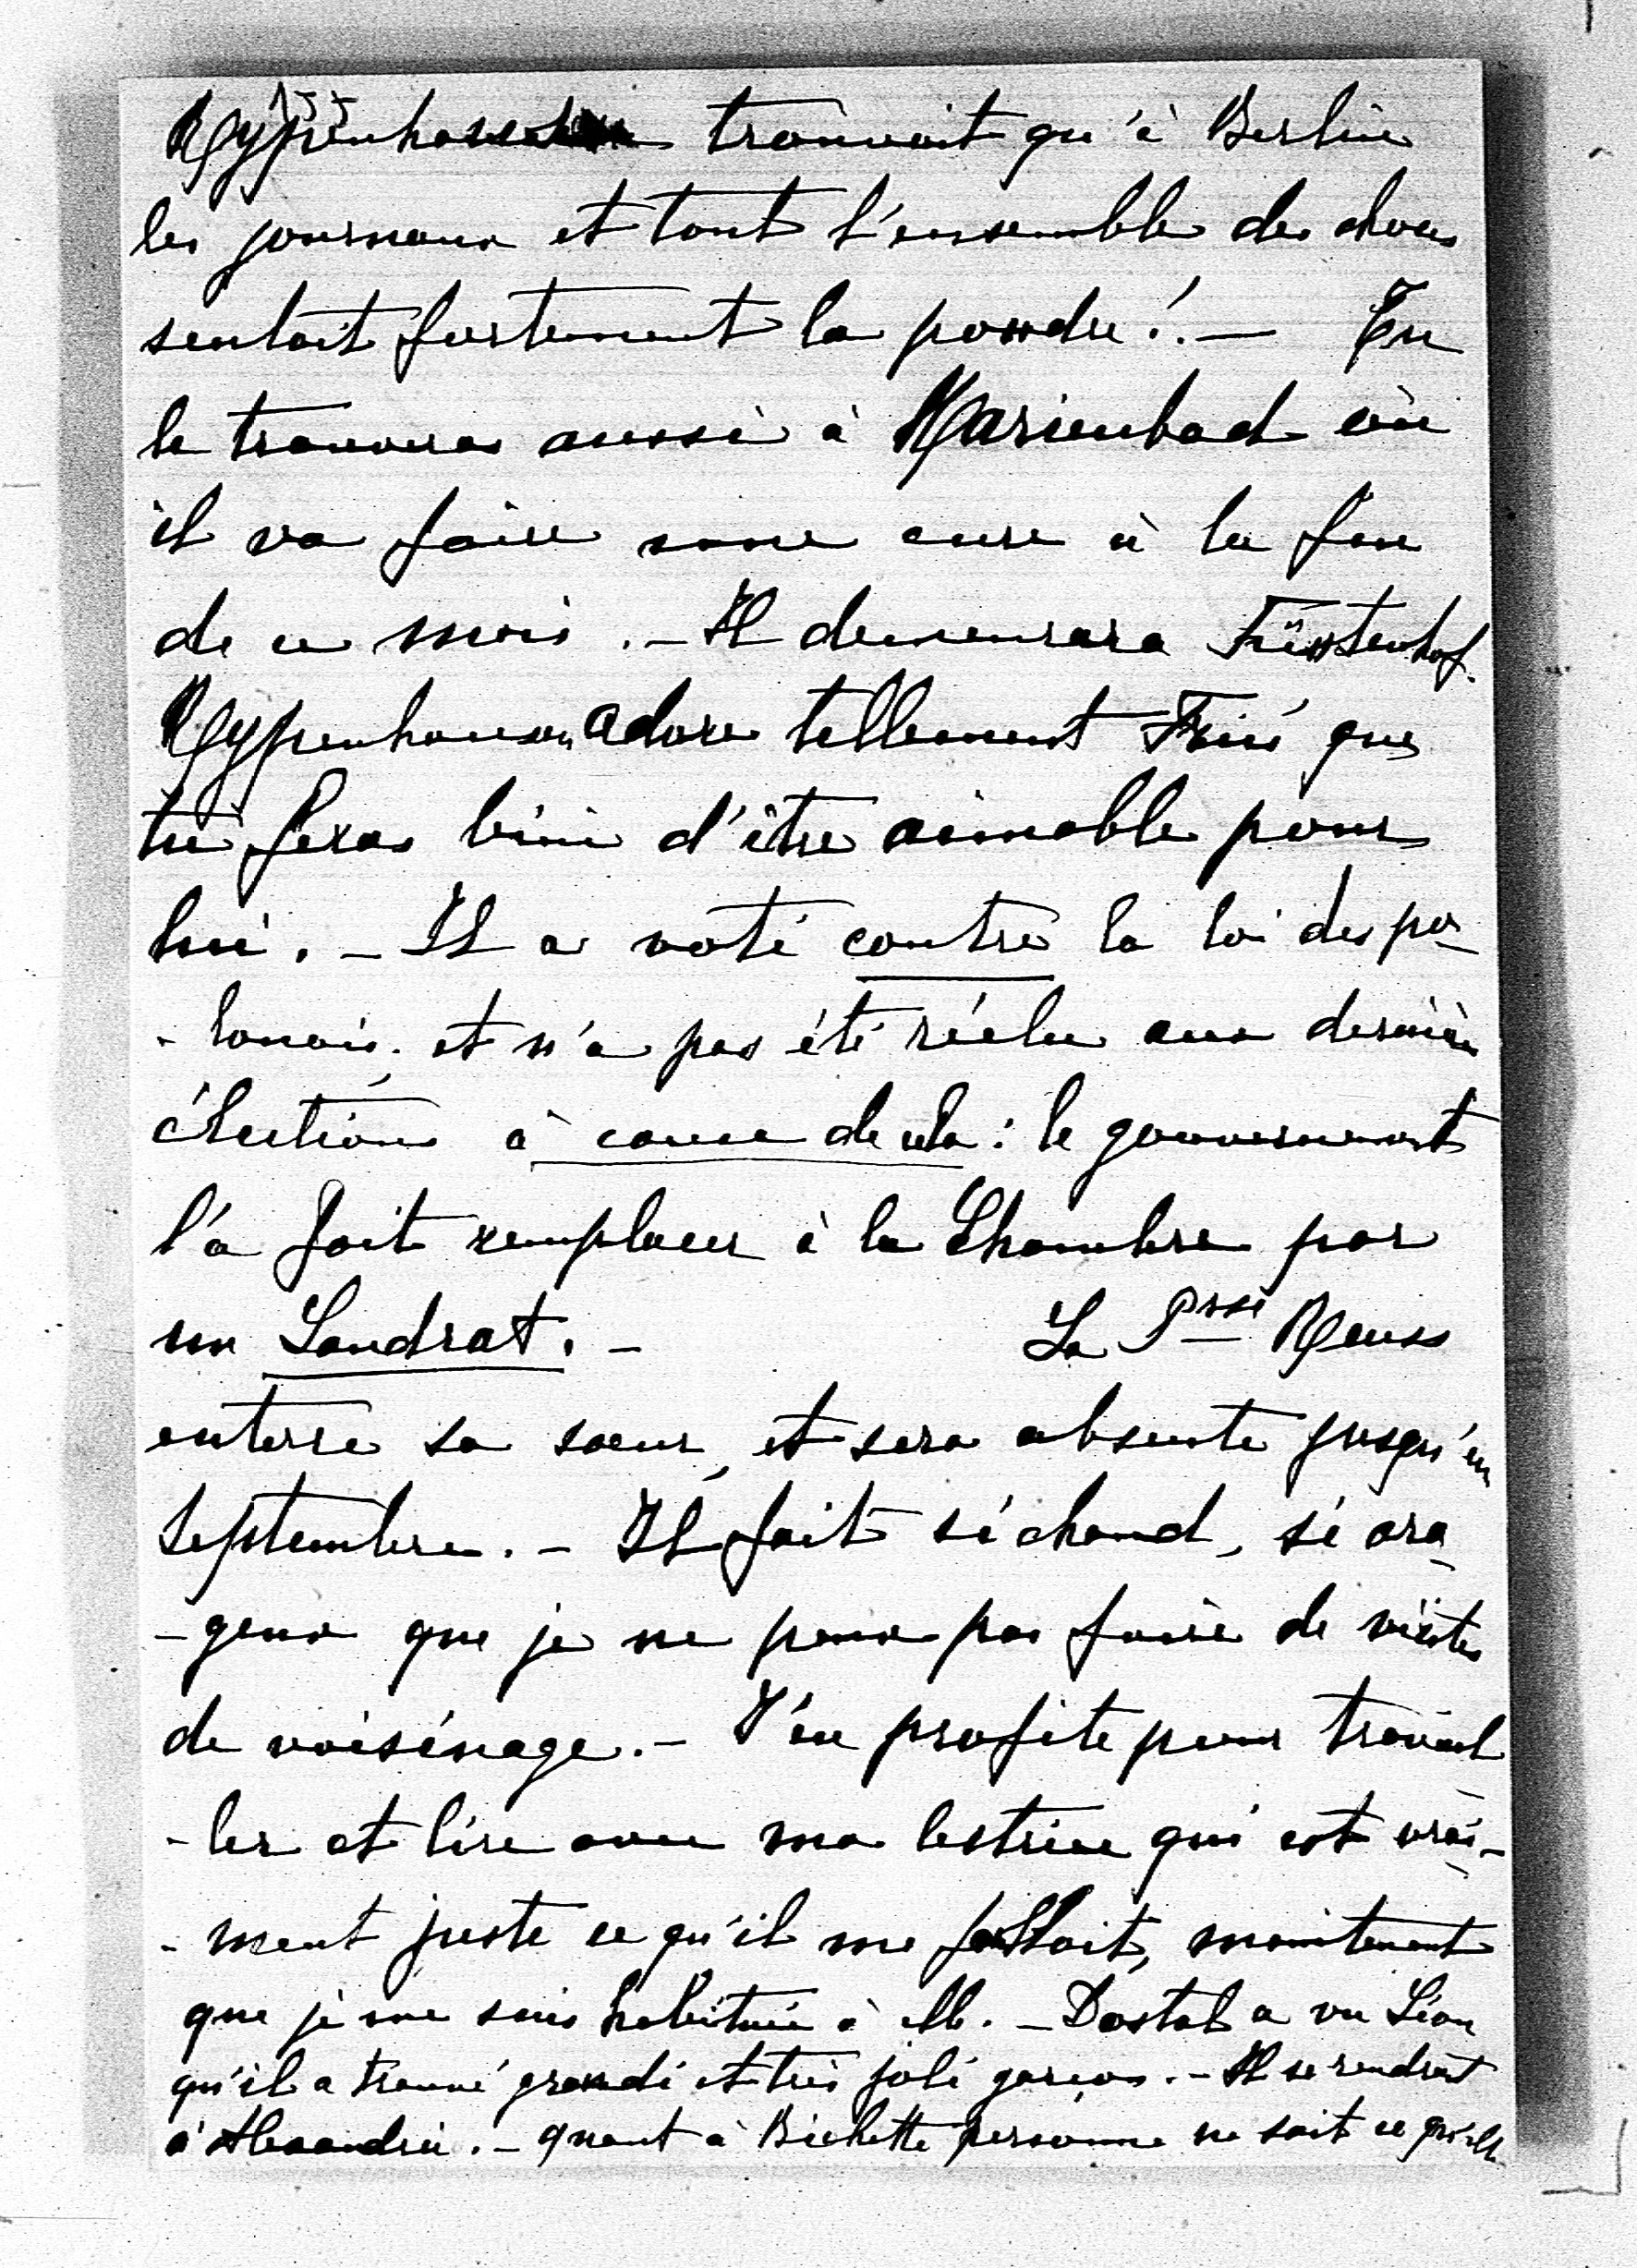 Rypenhausen trouvait qu'à Berlin
les journaux et tout l'ensemble des choses
sentait fortement la poudre! — Tu
le trouveras aussi à Marienbad où
il va faire une cure à la fin
de ce mois. — Il demeurera Fürstenhof.
Rypenhausen adore tellement que
tu feras bien d'être aimable pour
lui. — Il a voté contre la loi des po-
-lonais, et n'a pas été réélu aux dernières
élections à cause de cela : le gouvernement
l'a fait remplacer à la Chambre par
un Landrat. — La Psse Reuss
enterre sa sœur, et sera absente jusqu'en
Septembre. — Il fait si chaud, si ora-
-geux que je ne peux pas faire de visites
de voisinage. — J'en profite pour travail-
-ler et lire avec ma lectrice qui est vrai-
-ment juste ce qu'il me fallait, maintenant
que je me suis habituée à elle. — Dostal a vu Léon
qu'il a trouvé grandi et très joli garçon. — Il se rendrait
à Alexandrie. — quant à Bichette personne ne sait ce qu'elle